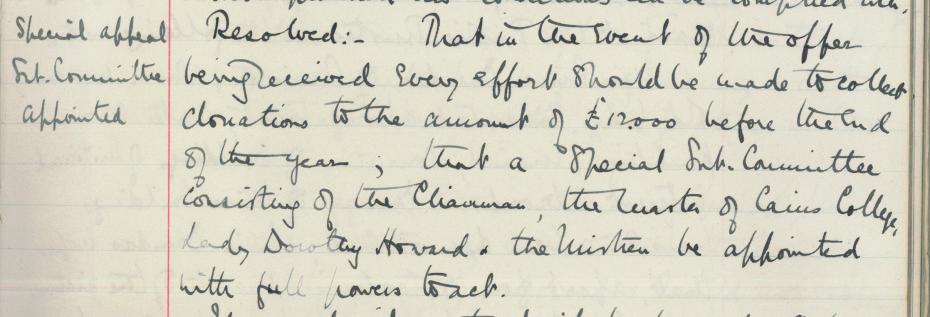 can be complied with.
Special appeal
Sub. Committee
appointed
Resolved:- That in the Event of the offer
being received Every Effort should be made to collect
donations to the amount of £12.000 before the End
of the year ; that a Special Sub. Committee
consisting of the Chairman, the Master of Caius College,
Lady Dorothy Howard & the Mistress be appointed
with full powers to act.